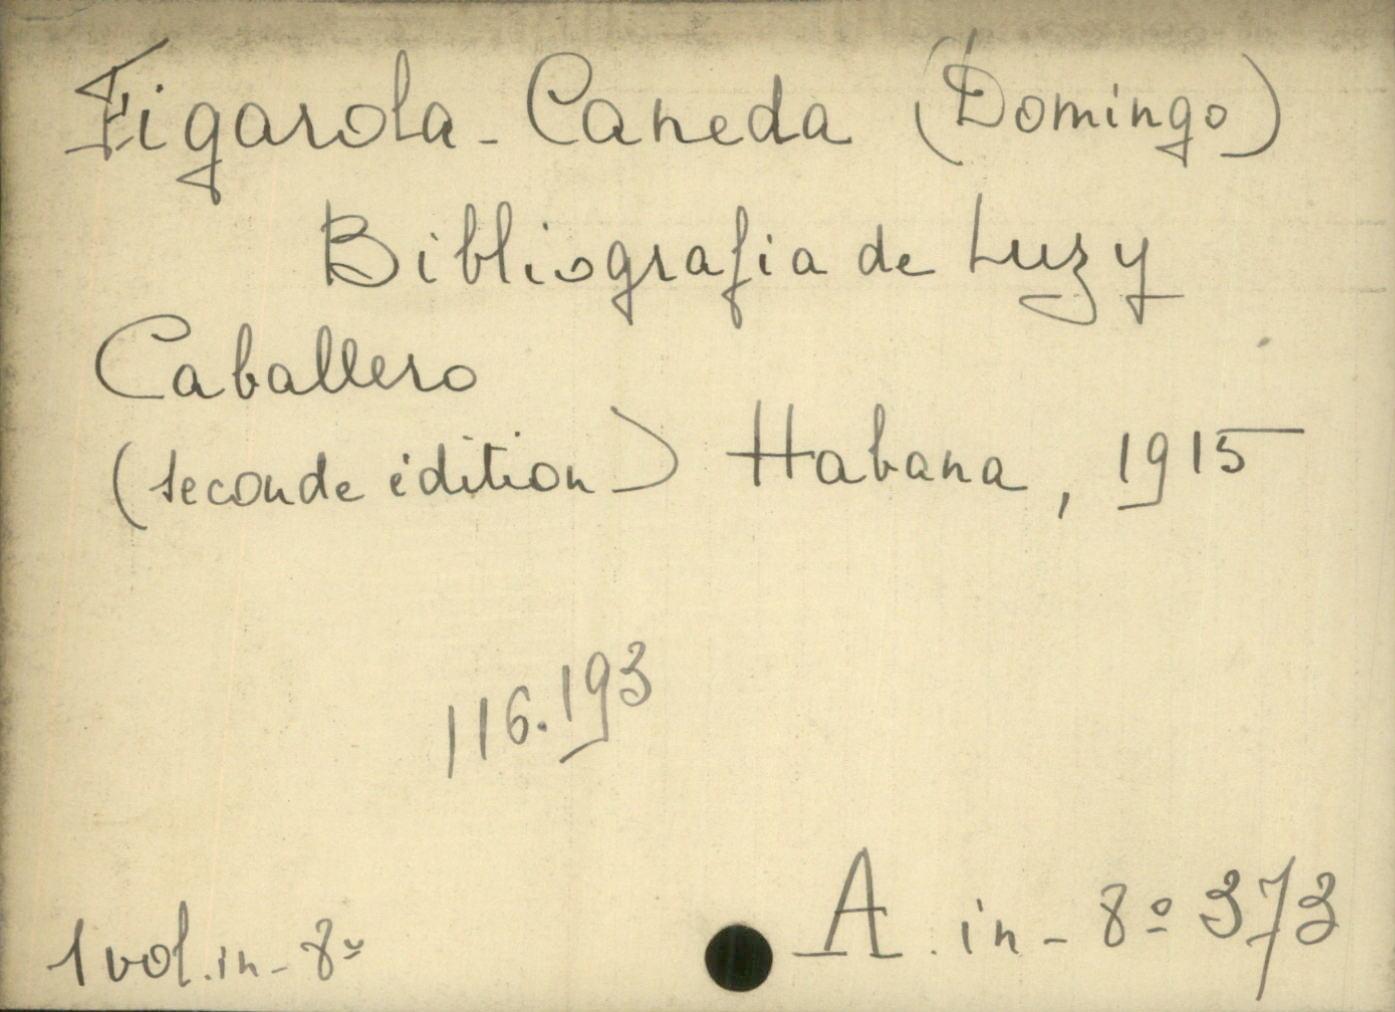 Figarola-Caneda (Domingo)
Bibliografia de Luz y
Caballero
(seconde édition) Habana, 1915
116.193
1 vol. in-8º
A. in-8º 373